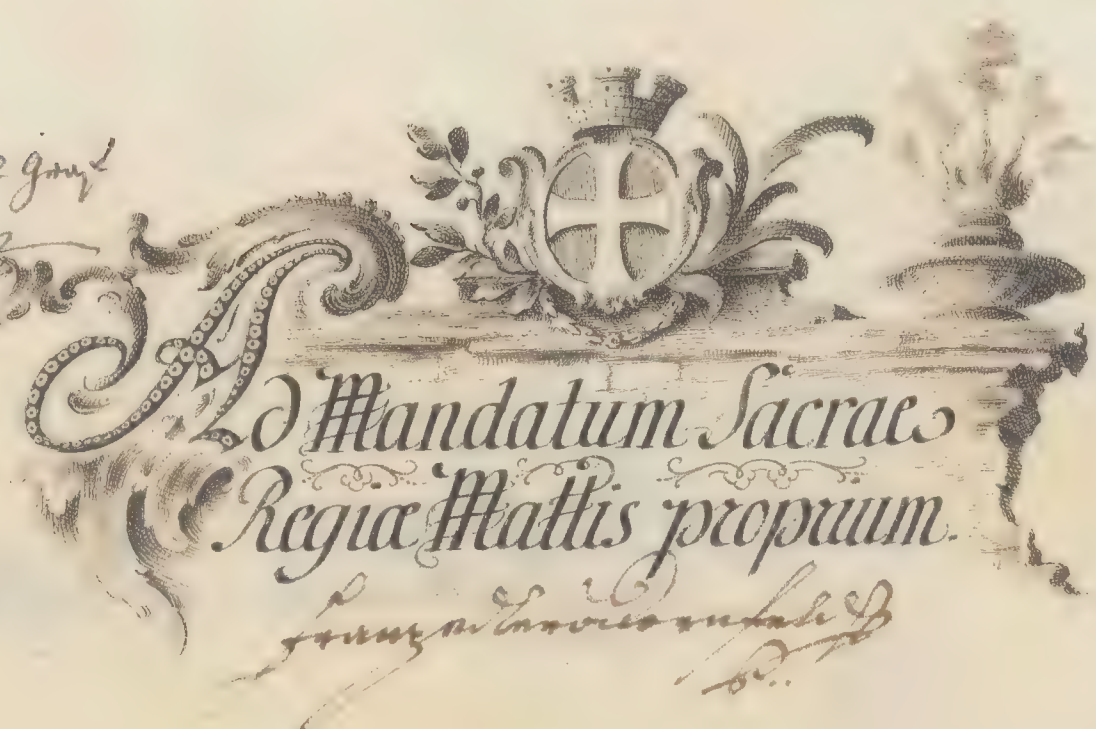 Ad Mandatum Sacrae
Regiæ Mattis proprium.
Franz